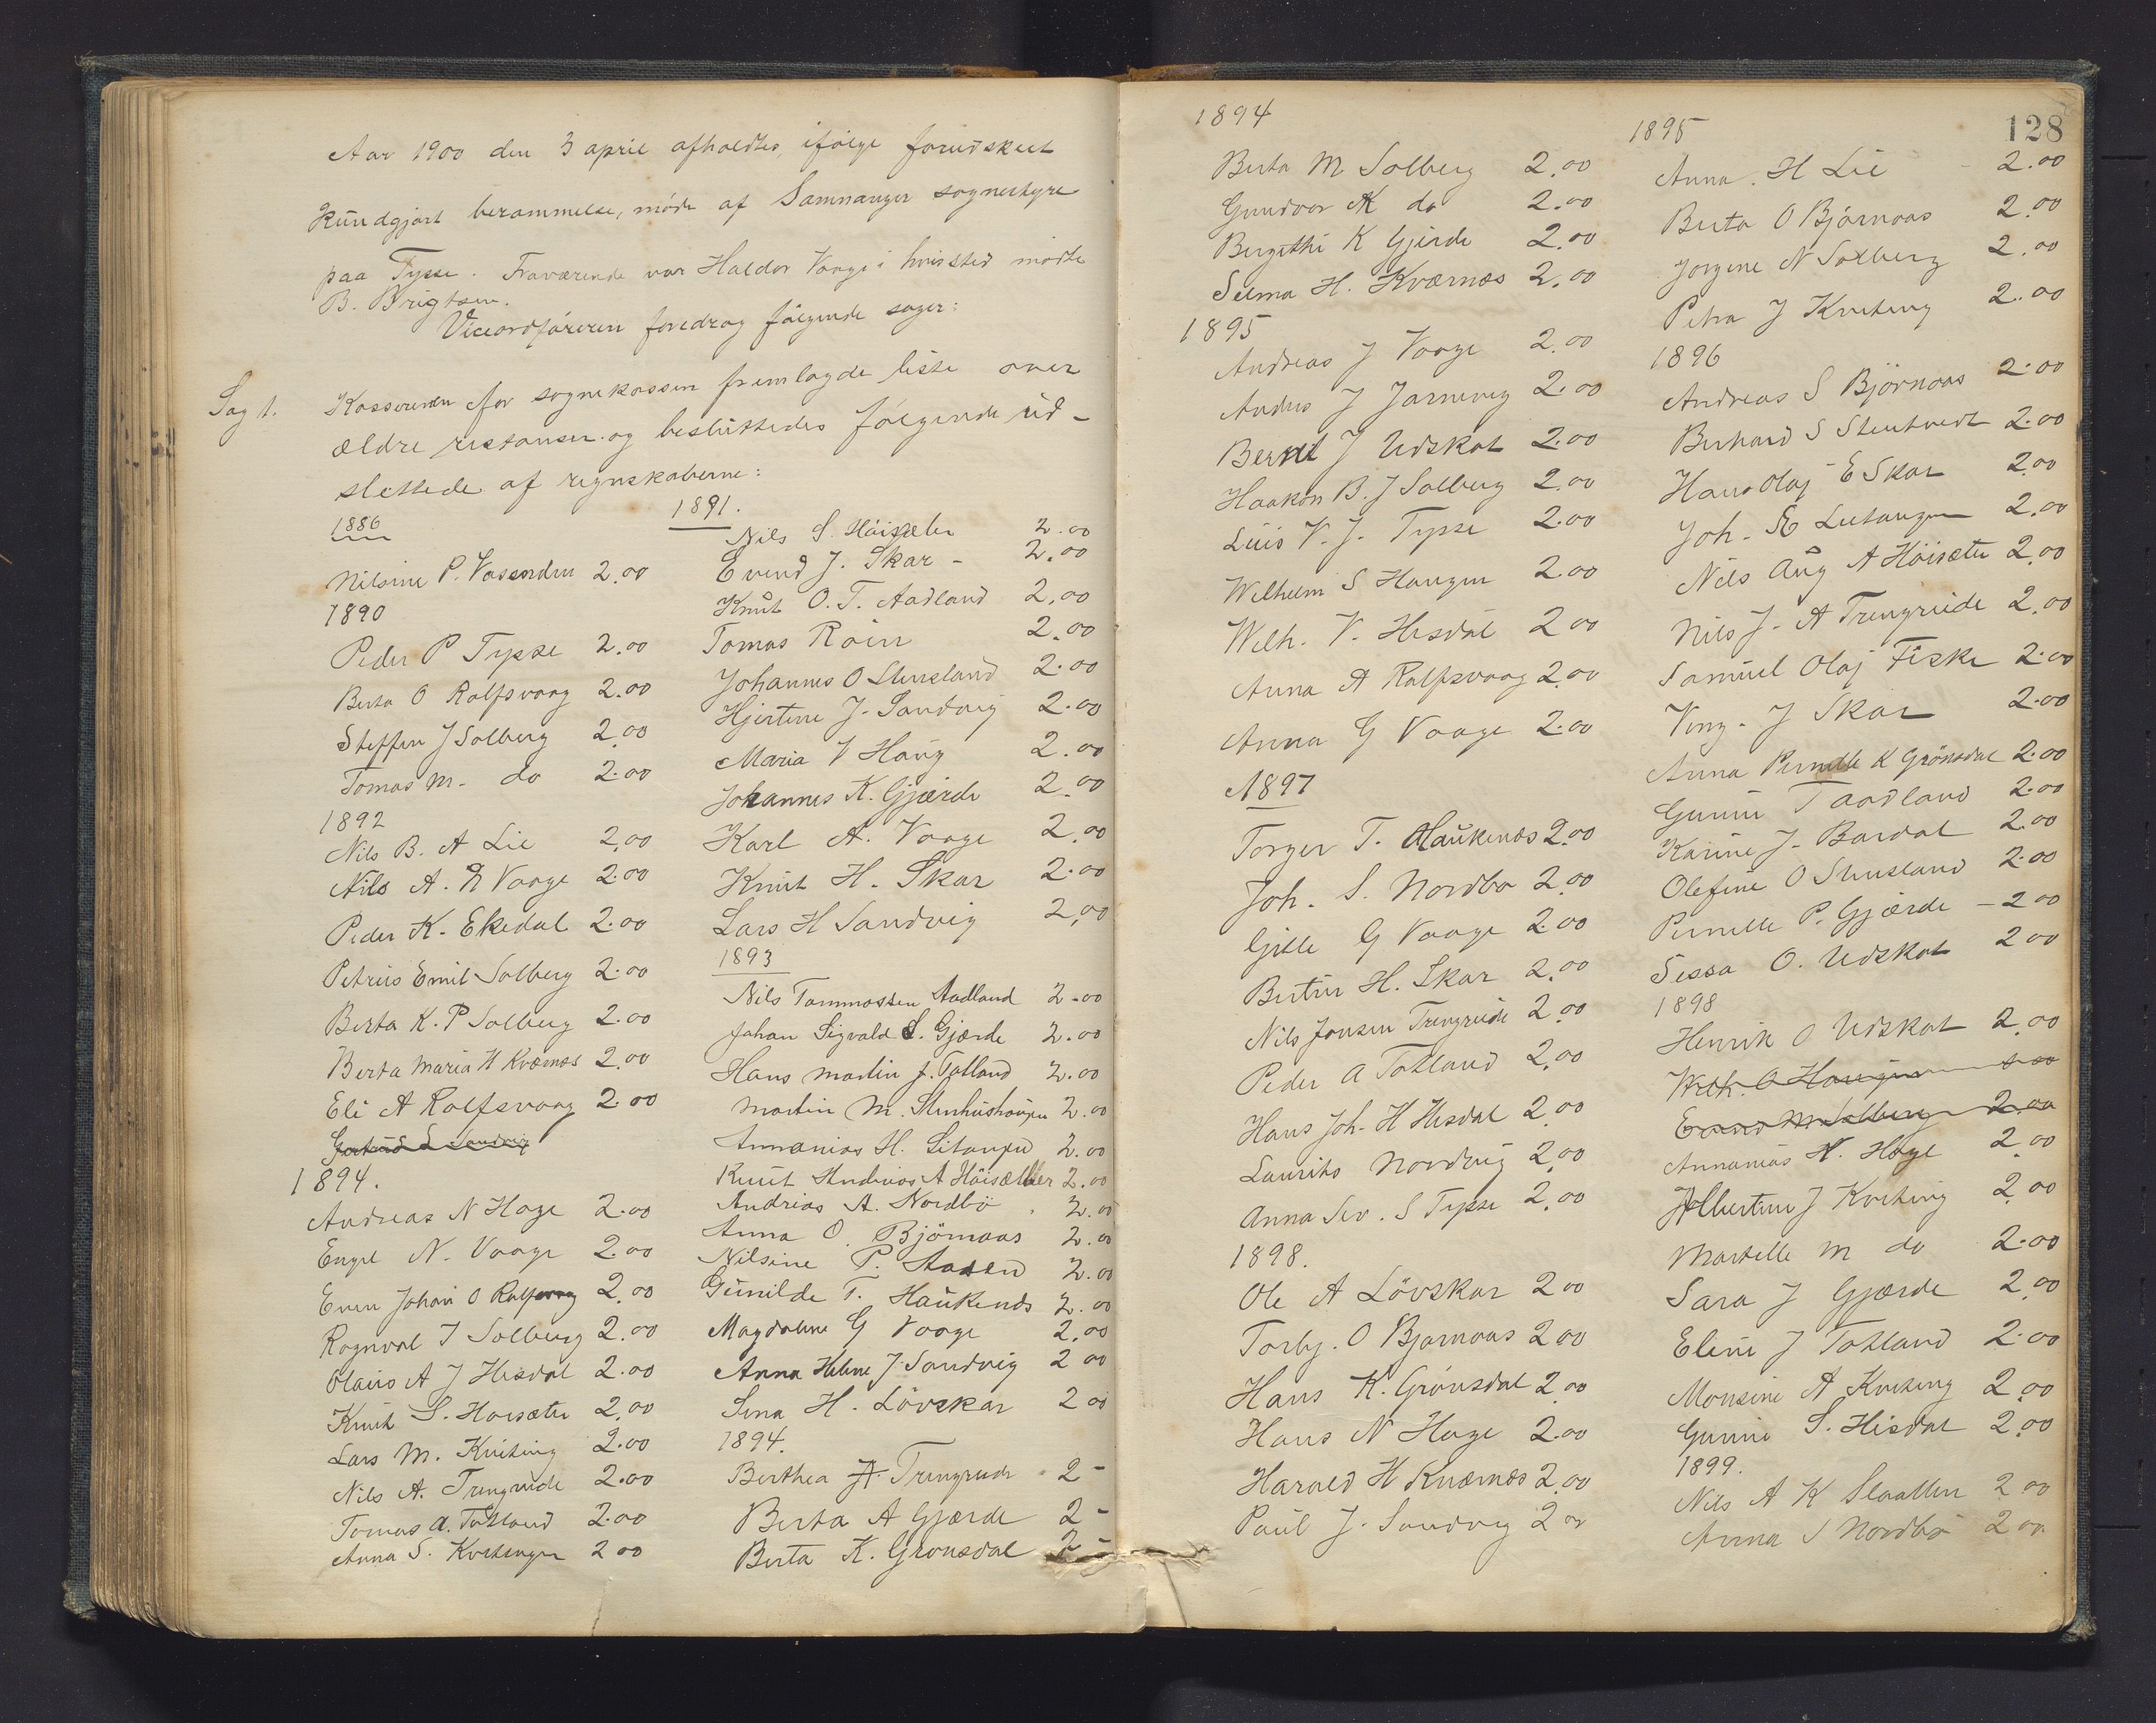 Aar 1900 den 3 april afholdtes, ifølge forudskeet
kundgjort berammelse, møde af Samnanger sognestyre
paa Tysse. Fraværende var Haldor Vaage i hvis sted mødte
B. Brigtsen.
Viceordføreren foredrog følgende sager:
Sag 1. Kassereren for sognekassen fremlagde liste over
ældre restanser og besluttedes følgende ud-
slettede af regnskaberne:
1886
Nilsine P. Vasenden 2.00
1890
Peder P Tysse 2.00
Berta O Rolfsvaag 2.00
Steffen J Solberg 2.00
Tomas M. do 2.00
1892
Nils B. A Lie 2.00
Nils A. N Vaage 2.00
Peder K. Ekedal 2.00
Petrus Emil Solberg 2.00
Berta K. P Solberg 2.00
Berta Maria H Kværnæs 2.00
Eli A Rolfsvaag 2.00
Gertrud L Sandvig
1894.
Andreas N Hage 2.00
Engel N. Vaage 2.00
Even Johan O Rolfsvaag 2.00
Ragnval J Solberg 2.00
Olaus A J Hisdal 2.00
Knut S. Høisæter 2.00
Lars M. Kviting 2.00
Nils A. Trengreide 2.00
Tomas A. Totland 2.00
Anna S. Kvitingen 2 00
1891.
Nils S. Høisæter 2.00
Evend J. Skar - 2.00
Knut O. T. Aadland 2.00
Tomas Røen 2.00
Johannes O Stensland 2.00
Hjertine J. Sandvig 2.00
Maria V Haug 2.00
Johannes K. Gjærde 2.00
Karl A. Vaage 2.00
Knut H. Skar 2.00
Lars H Sandvig 2,00
1893
Nils Tommassen Aadland 2.00
Johan Sigvald S. Gjærde 2.00
Hans Martin J. Totland 2.00
Martin M. Stenhushaugen 2.00
Annanias H. 2.00
Knut Andreas A Høisæther 2.00
Andreas A. Nordbø 2.00
Anna O. Bjørnaas 2.00
Nilsine P. Aasen 2.00
Gunilde T. Haukenæs 2.00
Magdalene G Vaage 2.00
Anna Helene J. Sandvig 2 00
Sina H. Løvskar 2 00
1894.
Berthea A. Trengreide 2 -
Berta A Gjærde 2 -
Berta K. Grønsdal 2 -
128
1894
Berta M Solberg 2.00
Gundvor K do 2.00
Bergithe K Gjerde 2.00
Selma H. Kværnæs 2.00
1895
Andreas J Vaage 2.00
Anders J Jarnevig 2.00
Bernt J Udskot 2.00
Haakon B. J Solberg 2.00
Luis V. J. Tysse 2.00
Wilhelm S Haugen 2.00
Wilh. V. Hisdal 2 00
Anna A Rolfsvaag 2.00
Anna G Vaage 2.00
1897
Torger T. Haukenæs 2.00
Joh. S. Nordbø 2.00
Gitle G Vaage 2.00
Bertin H. Skar 2.00
Nils Jonsen Trengreide 2.00
Peder A Totland 2.00
Hans Joh. H Hisdal 2.00
Laurits Nordvig 2.00
Anna Sev. S Tysse 2.00
1898.
Ole A Løvskar 2 00
Torbj. O Bjørnaas 2.00
Hans K. Grønsdal 2.00
Hans N Hage 2.00
Harald H Kværnæs 2.00
Paul J. Sandvig 2 00
1895
Anna. H Lie - 2.00
Berta O Bjørnaas 2.00
Jorgine N Solberg 2.00
Petra J Kviting 2.00
1896
Andreas S Bjørnaas 2.00
Berhard S Stentvedt 2.00
Hans Olaj E Skar 2.00
Joh. 2.00
Nils Aug A Høisæter 2.00
Nils J. A Trengreide 2.00
Samuel Olaj Fiske 2.00
Ving. J Skar 2.00
Anna Pernelle K Grønsdal 2.00
Gunni T Aadland 2.00
Karine J. Bardal 2.00
Olefine O Stensland 2.00
Pernelle P. Gjærde - 2 00
Sessa O. Udskot 2 00
1898
Henrik O Udskot 2.00
Wilh. O Haugen 2.00
Evend M Solberg 2.00
Annanias H. Hage 2.00
Albertine J Kviting 2.00
Martelle M do 2.00
Sara J Gjærde 2.00
Eline J Totland 2.00
Monsine A Kviting 2.00
Gunni S. Hisdal 2.00
1899.
Nils A K Slaatten 2 00
Anna S Nordbø 2 00